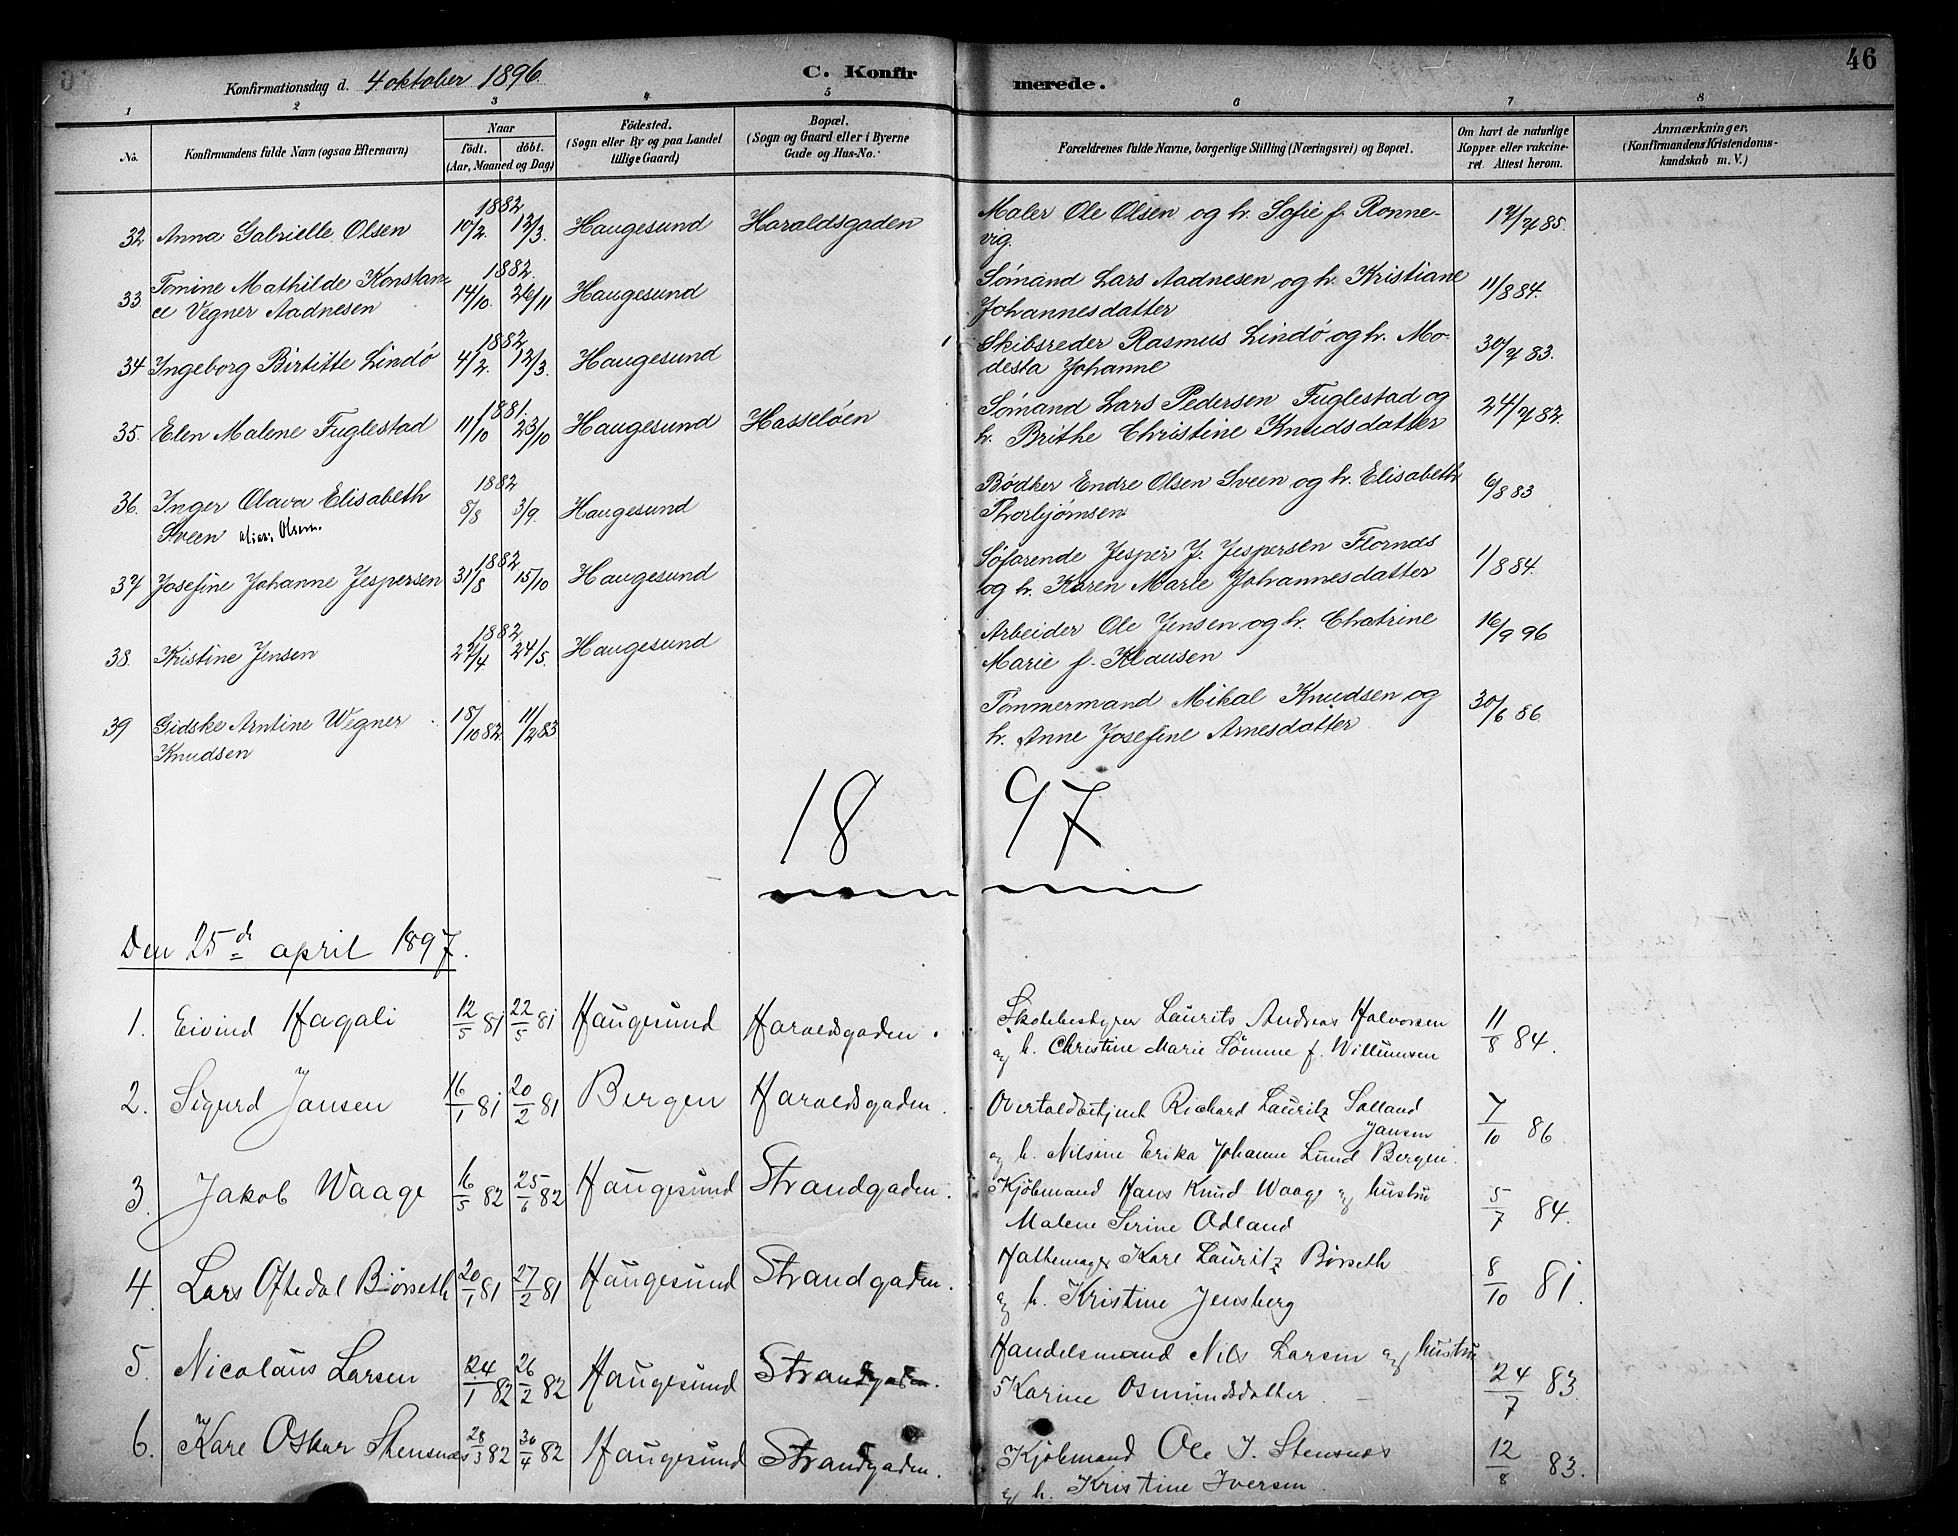 46
Konfirmationsdag d. 4 oktober 1896.
C. Konfirmerede.
1 2 3 4 5 6 7 8
No. Konfirmandens fulde Navn (ogsaa Efternavn) Naar födt. döbt. (Aar, Maaned og Dag) Födested. (Sogn eller By og paa Landet tillige Gaard) Bopæl. (Sogn og Gaard eller i Byerne Gade og Hus-No.) Forældrenes fulde Navne, borgerlige Stilling (Næringsvei) og Bopæl. Om havt de naturlige Kopper eller vakcineret. Attest herom. Anmærkninger. (Konfirmandens Kristendomskundskab m. V.)
1882
32 Anna Gabrielle Olsen 10/2. 12/3. Haugesund Haraldsgaden Maler Ole Olsen og h. Sofie f. Ronne-
vig. 17/7 85.
1882.
33 Tomine Mathilde Konstan- 14/10. 26/11 Haugesund Sømand Lars Aadnesen og h. Kristiane 11/8 84.
ce Vegner Aadnesen Johannesdatter
1882
34 Ingeborg Birtitte Lindö 4/2. 12/3. Haugesund Skibsreder Rasmus Lindö og h. Mo- 30/7 83.
desta Johanne
1881.
35. Elen Malene Fuglestad 11/10 23/10 Haugesund Hasseløen Sømand Lars Pedersen Fuglestad og 24/7 82.
h. Brithe Christine Knudsdatter
1882
36. Inger Olava Elisabeth 8/8 3/9. Haugesund Bødker Endre Olsen Sveen og h. Elisabeth 6/8 83
Sveen alias Olsen. Thorbjørnsen
1882
37 Josefine Johanne Jespersen 31/8 15/10 Haugesund Søfarende Jesper J. Jespersen Flornes 1/8 84.
og h. Karen Marie Johannesdatter
1882
38. Kristine Jensen 27/4 24/5. Haugesund Arbeider Ole Jensen og h. Chatrine 16/9 96
Marie f. Klausen
39 Gidske Arntine Wegner 18/10 82. 11/2 83 Tømmermand Mikal Knudsen og 30/6 86.
Knudsen h. Anne Josefine Arnesdatter
1897
Den 25de april 1897.
1. Eivind Hagali 12/5 81 22/5 81 Haugesund Haraldsgaden. Skolebestyrer Laurits Andreas Halvorsen 11/8 84.
og h. Christine Marie Sømme f. Willumsen
2. Sigurd Jansen 16/1 81 20/2 81 Bergen Haraldsgaden. Overtoldbetjent Richard Lauritz Solland 7/10 86.
Jansen
og h. Nilsine Erika Johanne Lund Bergen.
3. Jakob Waage 16/5 82 25/6 82 Haugesund Strandgaden. Kjøbmand Hans Knud Waage og hustru 5/7 84.
Malene Serine Odland
4. Lars Oftedal Børseth 20/1 81 27/2 81 Haugesund Strandgaden. Hattemager Karl Lauritz Børseth 8/10 81.
og h. Kristine Jensberg
5. Nicolaus Larsen 24/1 82 26/2 82 Haugesund Strandgaden. Handelsmand Nils Larsen og hustru 24/7 83.
Karine Osmundsdatter
6. Kare Oskar Stensnæs 28/3 82 30/4 82 Haugesund Strandgaden. Kjøbmand Ole J. Stensnæs 12/8 83.
og h. Kristine Iversen.